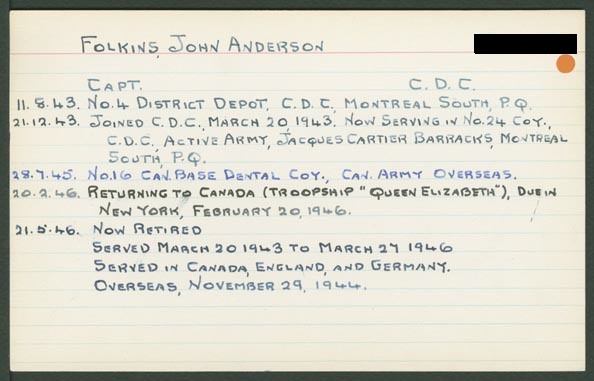 FOLKINS, JOHN ANDERSON
CAPT. C. D. C.
11.8.43. NO.4 DISTRICT DEPOT, C.D.C, MONTREAL SOUTH, P.Q.
21.12.43. JOINED C.D.C., MARCH 20, 1943, NOW SERVING IN NO.24 COY.,
C.D.C, ACTIVE ARMY, JACQUES CARTIER BARRACKS, MONTREAL
SOUTH, P.Q.
28.7.45. NO.16 CAN.BASE DENTAL COY., CAN. ARMY OVERSEAS.
20.2.46. RETURNING TO CANADA (TROOPSHIP "QUEEN ELIZABETH"), DUE IN
NEW YORK, FEBRUARY 20, 1946.
21.5.46. NOW RETIRED
SERVED MARCH 20 1943 TO MARCH 27 1946
SERVED IN CANADA, ENGLAND, AND GERMANY.
OVERSEAS, NOVEMBER 29, 1944.